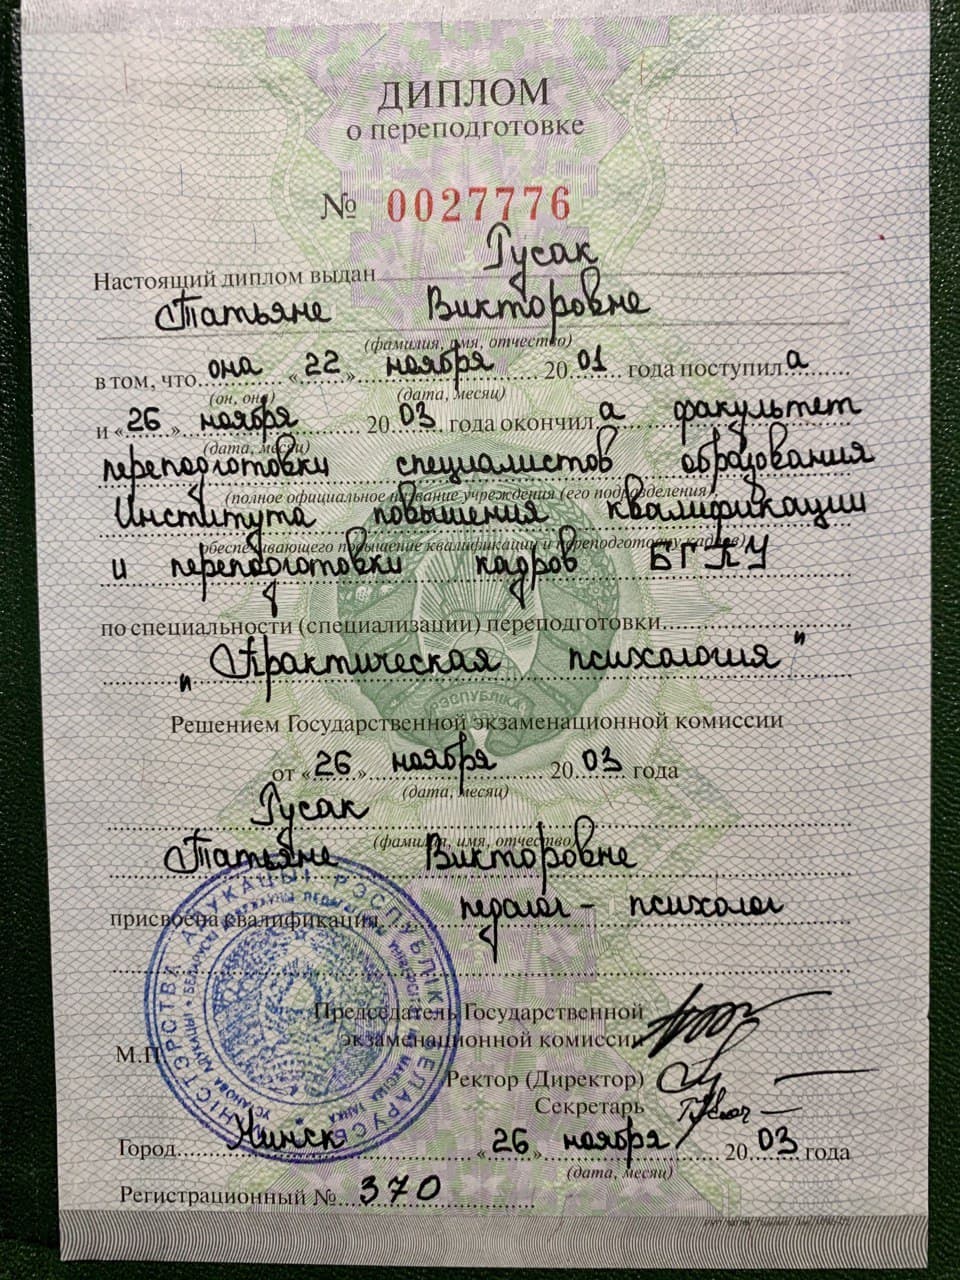 ДИПЛОМ
о переподготовке
№ 0027776
Настоящий диплом выдан Гусак
Татьяне Викторовне
(фамилия, имя, отчество)
в том, что она «22» ноября 2001 года поступила
(он, она) (дата, месяц)
и «26» ноября 2003 года окончила факультет
(дата, месяц)
переподготовки специалистов образования
(полное официальное название учреждения (его подразделения),
Института повышения квалификации
обеспечивающего повышение квалификации и переподготовку кадров)
и переподготовки кадров БГПУ
по специальности (специализации) переподготовки
"Практическая психология"
РЭСПУБЛІКА
Решением Государственной экзаменационной комиссии
от «26» ноября 2003 года
(дата, месяц)
Гусак
(фамилия, имя, отчество)
Татьяне Викторовне
присвоена квалификация педагог-психолог
Председатель Государственной
экзаменационной комиссии
М.П.
Ректор (Директор)
Секретарь
Город Минск «26» ноября 2003 года
(дата, месяц)
Регистрационный № 370
МІНІСТЭРСТВА АДУКАЦЫІ РЭСПУБЛІКІ БЕЛАРУСЬ